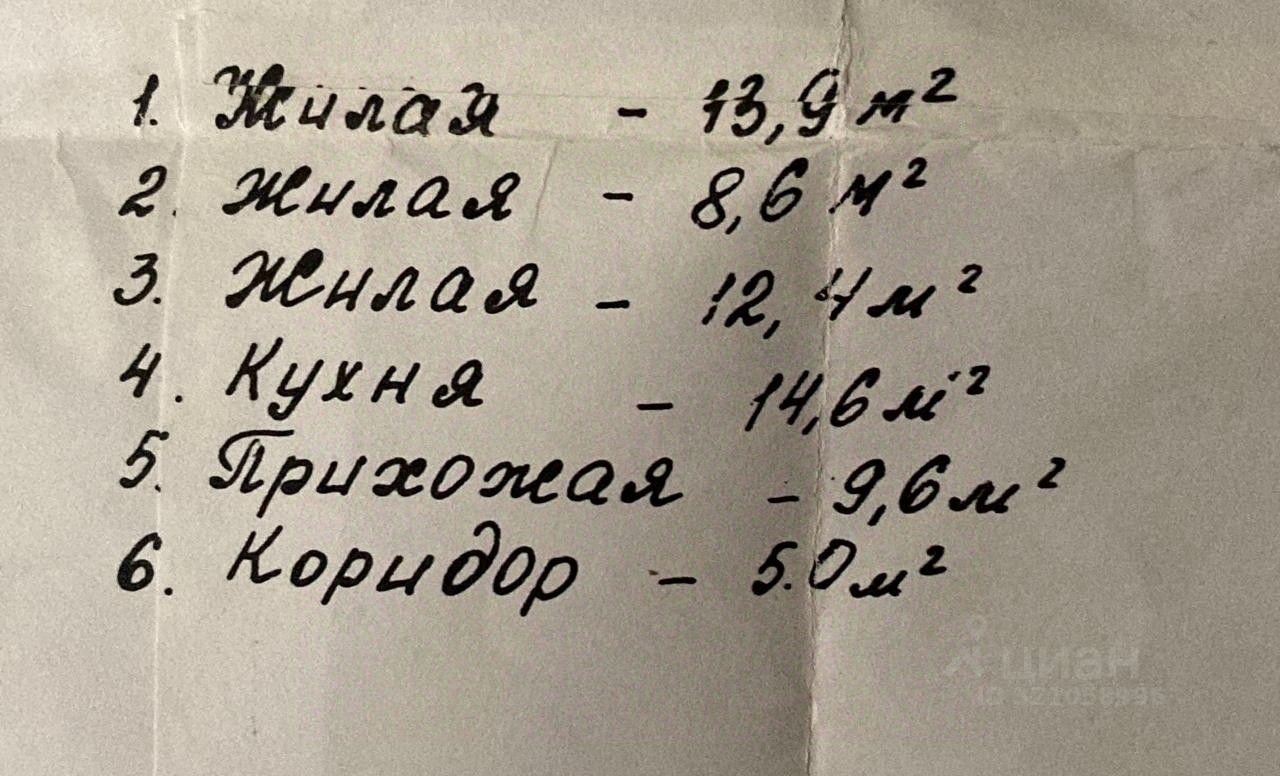 1. Жилая - 13,9 м²
2. Жилая - 8,6 м²
3. Жилая - 12,4 м²
4. Кухня - 14,6 м²
5. Прихожая - 9,6 м²
6. Коридор - 5.0 м²
циан